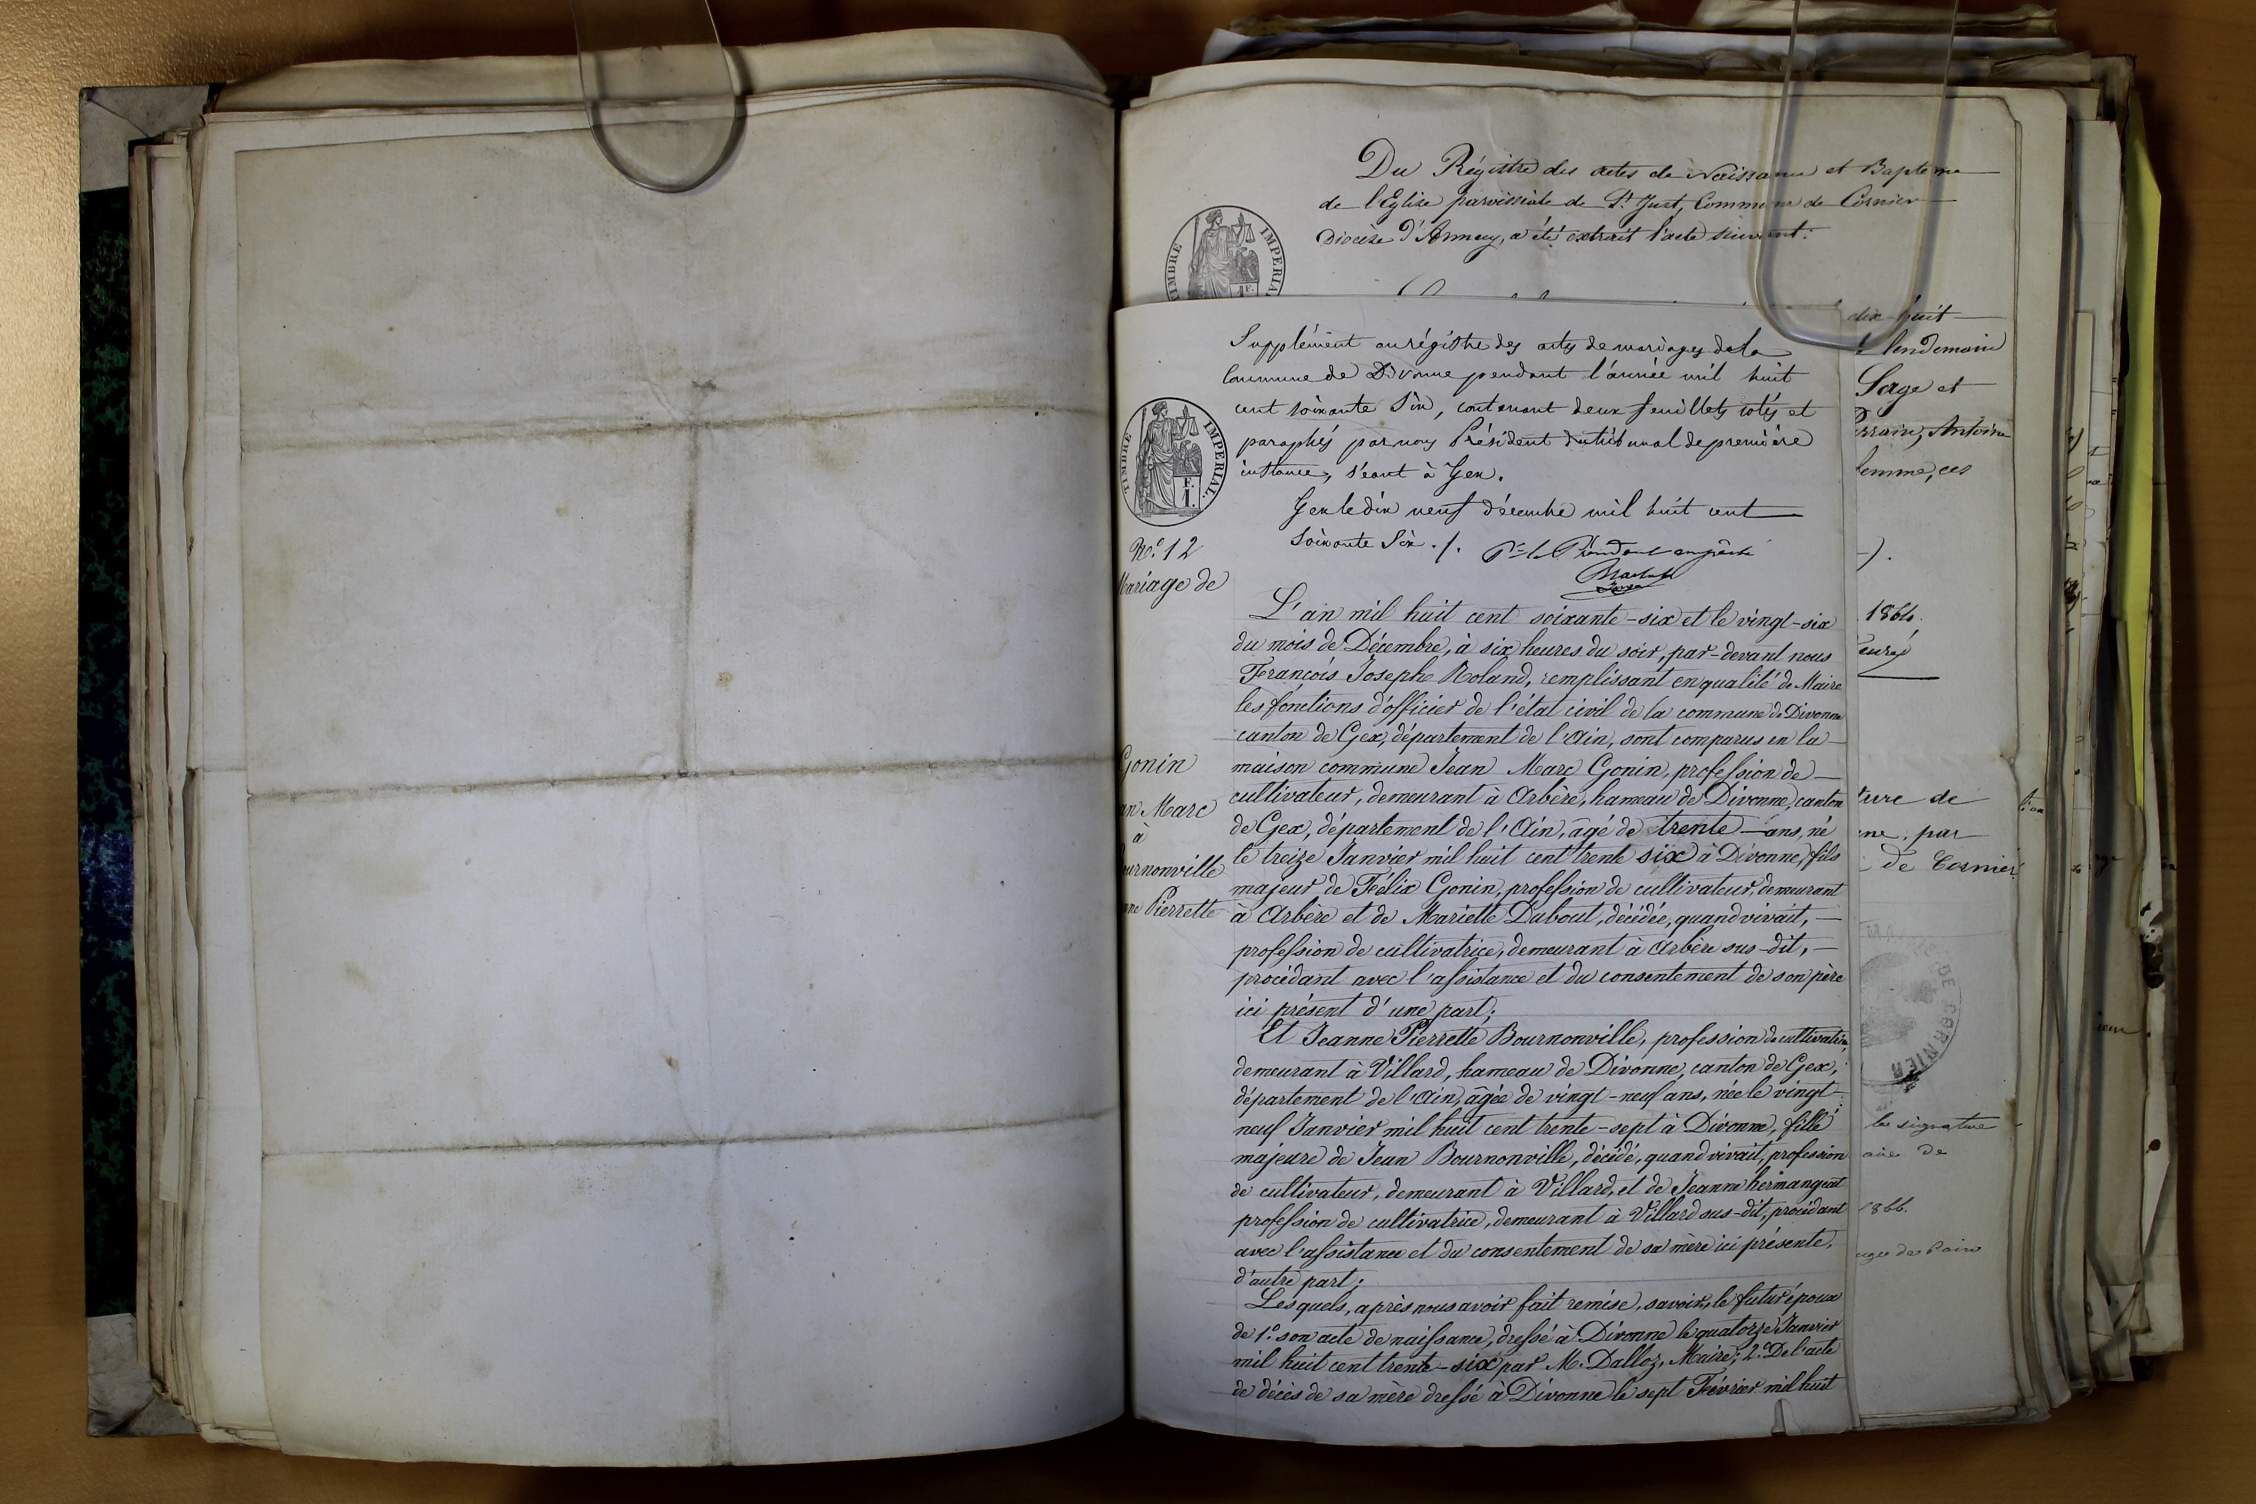 Du Régistre des actes de Naissance et Baptême
de l'Eglise paroissiale de St Just, Commune de Cornier
Diocèse d'Annecy, a été extrait l'acte suivant:
TIMBRE IMPERIAL
1F.
dix-huit
lendemain
Sage et
Antoine
femme, ces
1866.
curé
ture de
par
de Cornier
DE CORNIER
la signature
de
1866.
Supplément au régistre des actes de mariages de la
Commune de Divonne pendant l'année mil huit
cent soixante Six, contenant deux feuillets cotés et
paraphés par nous Président du tribunal de première
instance, séant à Gex.
Gex le dix neuf décembre mil huit cent
Soixante Six ./. Pr le Président empêché
TIMBRE IMPERIAL.
F. 1.
No. 12
Mariage de
Gonin
an Marc
à
ournonville
nne Pierrette
L'an mil huit cent soixante-six et le vingt-six
du mois de Décembre, à six heures du soir, par-devant nous
François Joseph Roland, remplissant en qualité de Maire
les fonctions d'officier de l'état civil de la commune de Divonne
canton de Gex, département de l'Ain, sont comparus en la
maison commune Jean Marc Gonin, profession de
cultivateur, demeurant à Arbère, hameau de Divonne, canton
de Gex, département de l'Ain, âgé de trente ans, né
le treize Janvier mil huit cent trente six à Divonne, fils
majeur de Félix Gonin, profession de cultivateur, demeurant
à Arbère et de Mariette Dubout, décédée, quand vivait,
profession de cultivatrice, demeurant à Arbère sus-dit,
procédant avec l'assistance et du consentement de son père
ici présent d'une part;
Et Jeanne Pierrette Bournonville, profession de cultivatrice,
demeurant à Villard, hameau de Divonne, canton de Gex,
département de l'Ain, âgée de vingt-neuf ans, née le vingt
neuf Janvier mil huit cent trente-sept à Divonne, fille
majeure de Jean Bournonville, décédé, quand vivait, profession
de cultivateur, demeurant à Villard, et de Jeanne hermangeat
profession de cultivatrice, demeurant à Villard sus-dit, procédant
avec l'assistance et du consentement de sa mère ici présente,
d'autre part;
Lesquels, après nous avoir fait remise, savoir, le futur époux
de 1.o son acte de naissance, dressé à Divonne le quatorze Janvier
mil huit cent trente-six par M. Dalloz, Maire; 2.o De l'acte
de décès de sa mère dressé à Divonne le sept Février mil huit